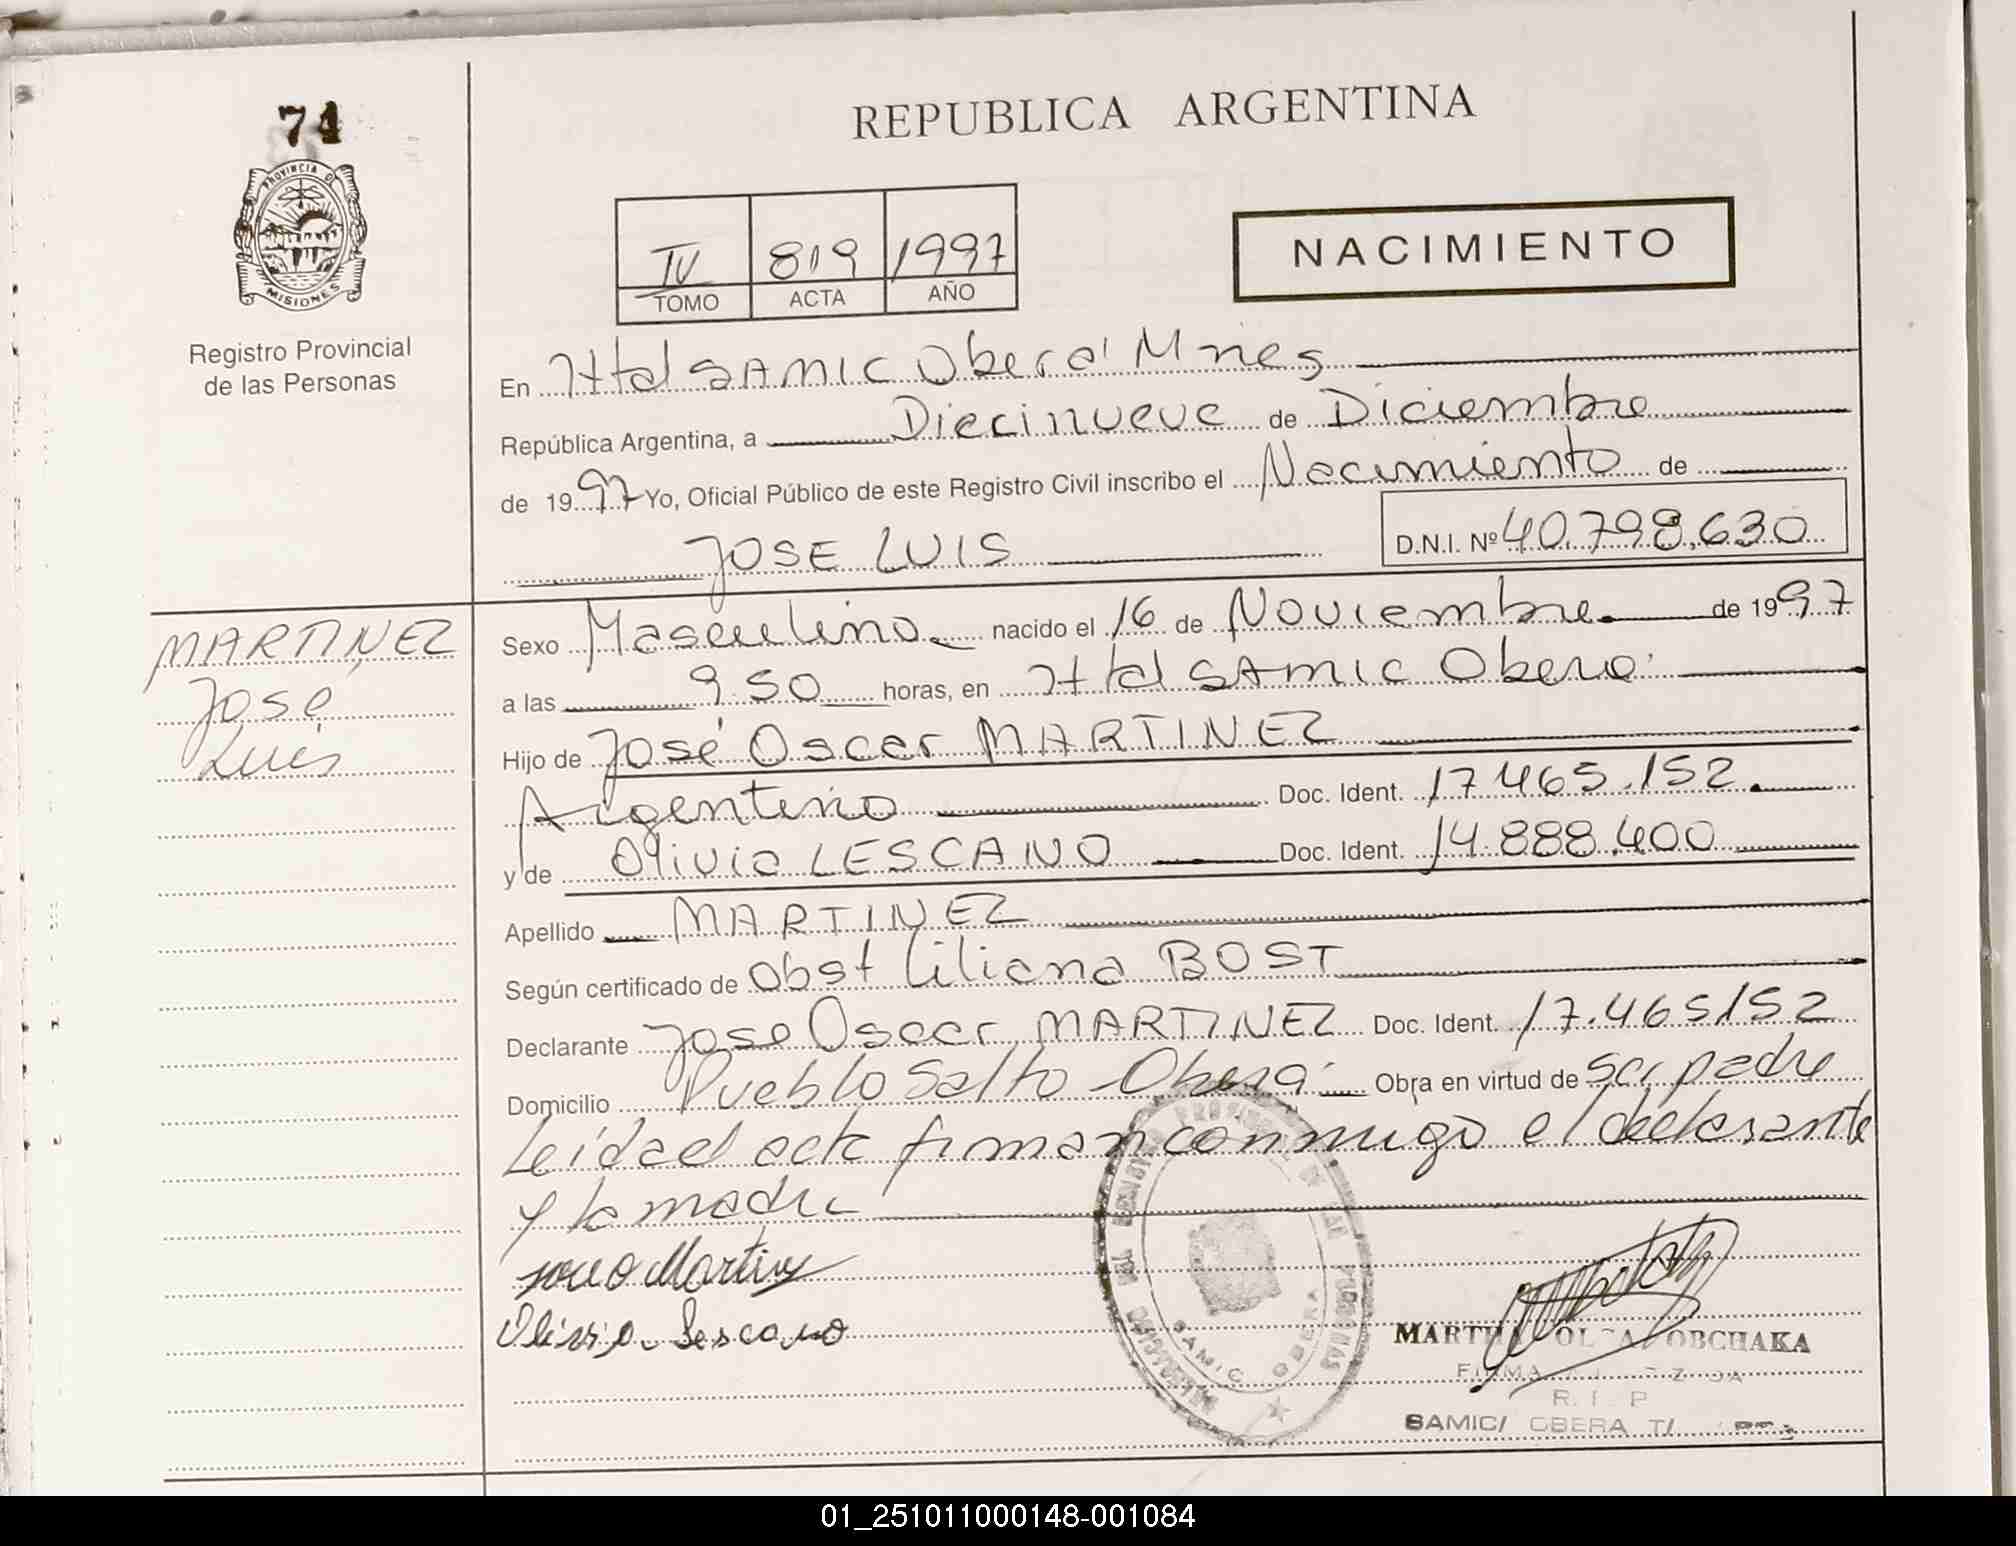 74
PROVINCIA D
MISIONES
Registro Provincial
de las Personas
REPUBLICA ARGENTINA
IV 819 1997
TOMO ACTA AÑO
NACIMIENTO
En Htal SAMIC Oberá Mnes
República Argentina, a Diecinueve de Diciembre
de 1997 Yo, Oficial Público de este Registro Civil inscribo el Nacimiento de
JOSE LUIS D.N.I. Nº 40.798.630
MARTINEZ
José
Luis
Sexo Masculino nacido el 16 de Noviembre de 1997
a las 9.50 horas, en Htal SAMIC Oberá
Hijo de José Oscar MARTINEZ
Argentino Doc. Ident. 17.465.152
y de Olivia LESCANO Doc. Ident. 14.888.400
Apellido MARTINEZ
Según certificado de Obst Liliana BOST
Declarante Jose Oscar MARTINEZ Doc. Ident. 17.465152
Domicilio Pueblo Salto Oberá Obra en virtud de ser padre
Leída el acta firman conmigo el declarante
y la madre
Martinez
Olivia Lescano
SAMIC OBERA
MARTHA OLGA OBCHAKA
R. I. P
SAMIC/ OBERA T/
01_251011000148-001084